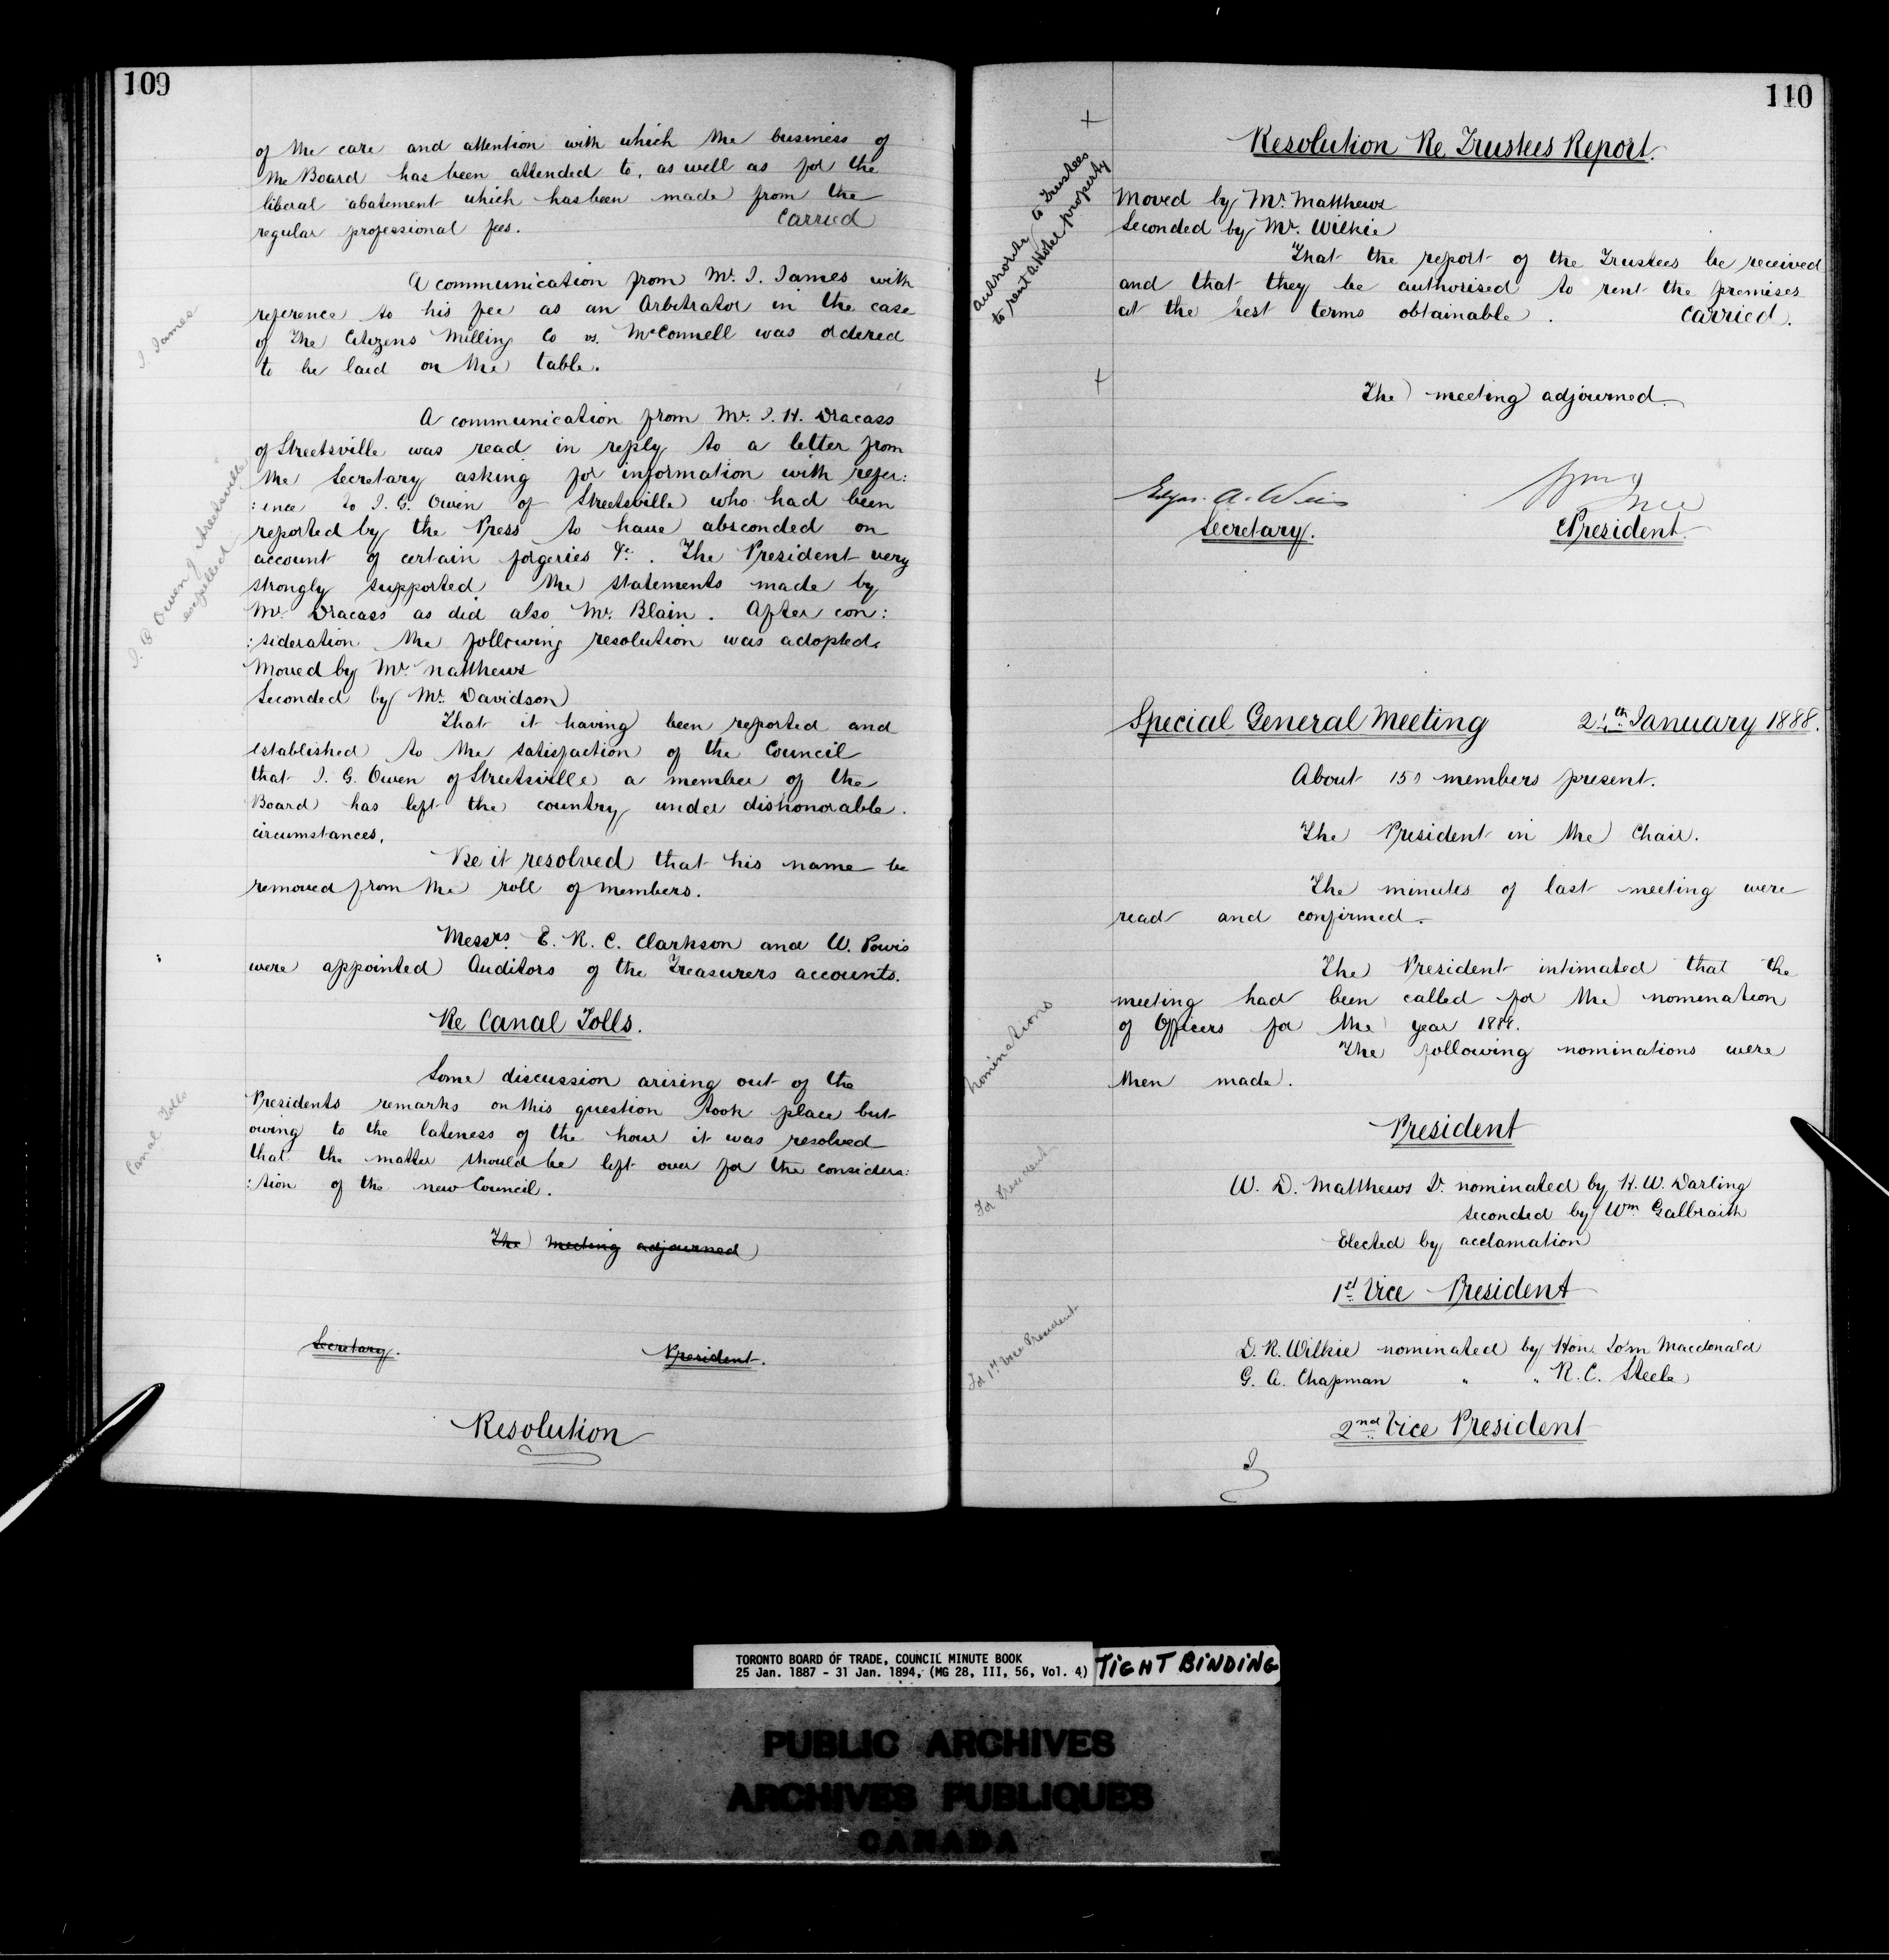 109
of the care and attention with which the business of
the Board has been attended to, as well as for the
liberal abatement which has been made from the
regular professional fees. Carried
J. James
A communication from Mr. J. James with
reference to his fee as an Arbitrator in the case
of The Citizens Milling Co vs. McConnell was ordered
to be laid on the table.
A communication from Mr. J. H. Dracass
of Streetsville was read in reply to a letter from
the Secretary asking for information with refer:
:ence to J. G. Owen of Streetsville who had been
reported by the Press to have absconded on
account of certain forgeries &c. The President very
strongly supported the statements made by
Mr. Dracass as did also Mr. Blain. After con:
:sideration the following resolution was adopted.
J. G Owen of Streetsville
expelled
Moved by Mr. Matthews
Seconded by Mr. Davidson
That it having been reported and
established to the satisfaction of the Council
that J. G. Owen of Streetsville a member of the
Board has left the country under dishonorable
circumstances.
Be it resolved that his name be
removed from the roll of members.
Messrs. E. R. C. Clarkson and W. Powis
were appointed Auditors of the Treasurers accounts.
Re Canal Tolls.
Canal Tolls
Some discussion arising out of the
Presidents remarks on this question took place but
owing to the lateness of the hour it was resolved
that the matter should be left over for the considera:
:tion of the new Council.
The meeting adjourned
Secretary. President.
Resolution
110
Resolution Re Trustees Report.
authority to Trustees
to rent a Hotel property
Moved by Mr. Matthews
Seconded by Mr. Wilkie
That the report of the Trustees be received
and that they be authorised to rent the premises
at the best terms obtainable. Carried.
The meeting adjourned
Edgar A. Wills
Secretary. President
Special General Meeting 24th January 1888.
About 150 members present.
The President in the Chair.
The minutes of last meeting were
read and confirmed.
The President intimated that the
meeting had been called for the nomination
of Officers for the year 1888.
The following nominations were
then made.
nominations
President
For President
W. D. Matthews Jr. nominated by H. W. Darling
seconded by Wm Galbraith
Elected by acclamation
1st Vice President
For 1st Vice President
D. R. Wilkie nominated by Hon. Macdonald
G. A. Chapman " " R. C. Steele
2nd Vice President
TORONTO BOARD OF TRADE, COUNCIL MINUTE BOOK
25 Jan. 1887 - 31 Jan. 1894, (MG 28, III, 56, Vol. 4)
TIGHT BINDING
PUBLIC ARCHIVES
ARCHIVES PUBLIQUES
CANADA